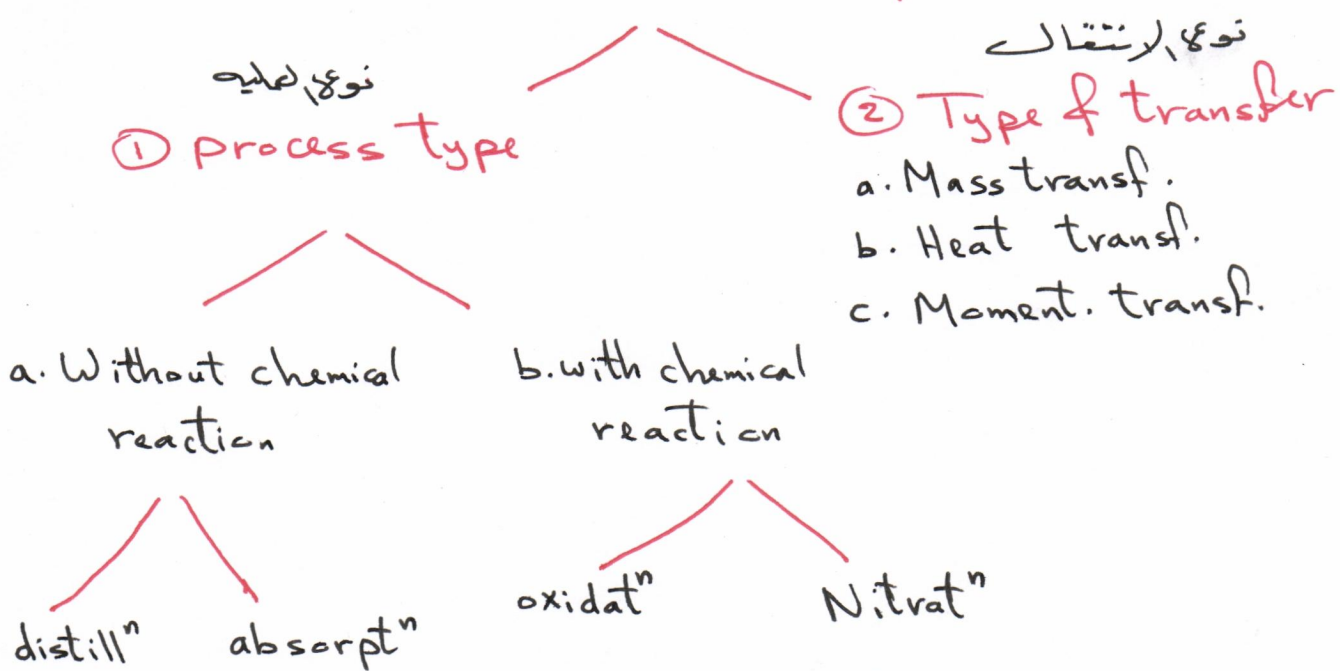 نوع العمليه
① process type
نوع الانتقال
② Type of transfer
a. Mass transf.
b. Heat transf.
c. Moment. transf.
a. Without chemical
reaction
b. with chemical
reaction
distillⁿ
absorptⁿ
oxidatⁿ
Nitratⁿ